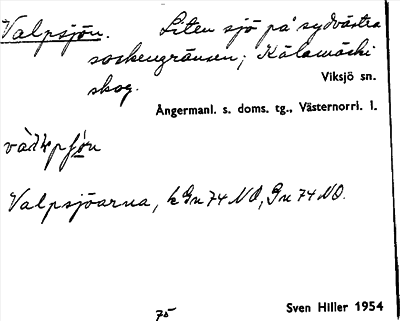 Valpsjön. Liten sjö på sydvästra
sockengränsen; Kälamäcki
skog.
Viksjö sn.
Ångermanl. s. doms. tg., Västernorrl. l.
Valpsjöarna, k Gn 74 NO, Gn 74 NO.
75
Sven Hiller 1954